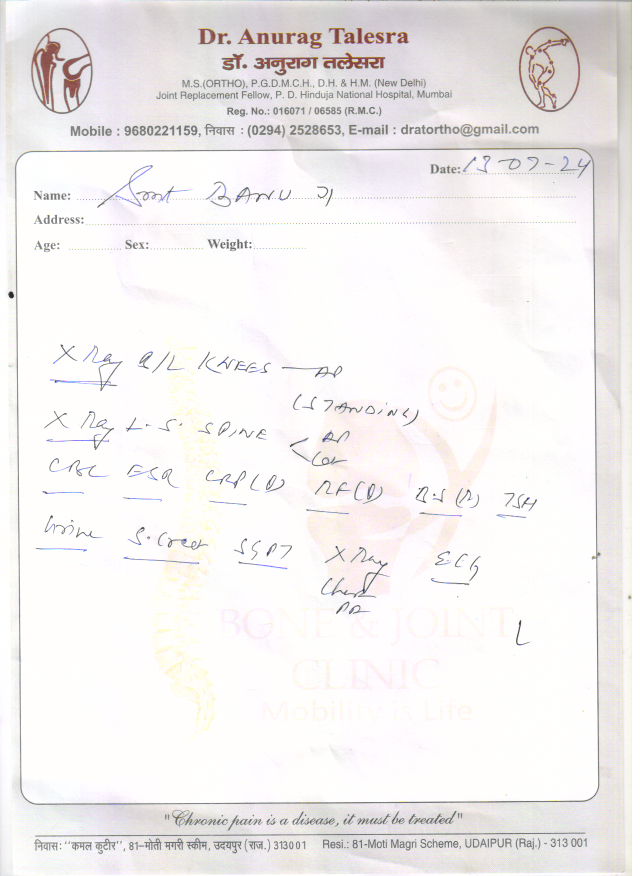 Dr. Anurag Talesra
डॉ. अनुराग तलेसरा
M.S.(ORTHO), P.G.D.M.C.H., D.H. & H.M. (New Delhi)
Joint Replacement Fellow, P. D. Hinduja National Hospital, Mumbai
Reg. No.: 016071 / 06585 (R.M.C.)
Mobile : 9680221159, निवास : (0294) 2528653, E-mail : dratortho@gmail.com
Date: 13-07-24
Name: Smt BANU जी
Address:
Age: Sex: Weight:
X Ray B/L KNEES — AP
(STANDING)
X Ray L.S. SPINE AP
Lat
CBC ESR CRP(Q) RF(Q) B.S(R) TSH
Urine S.Creat SGPT X Ray ECG
Chest
PA
BONE & JOINT
CLINIC
Mobility is Life
"Chronic pain is a disease, it must be treated"
निवास: "कमल कुटीर", 81-मोती मगरी स्कीम, उदयपुर (राज.) 313001 Resi.: 81-Moti Magri Scheme, UDAIPUR (Raj.) - 313 001